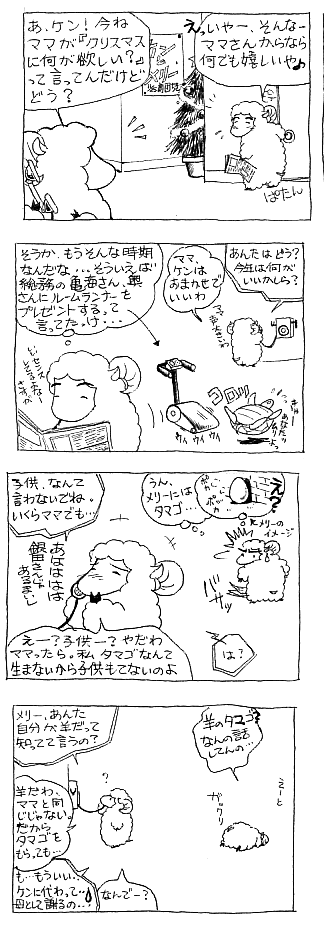 あ、ケン！今ね
ママが『クリスマス
に何が欲しい？』
って言ってんだけど
どう？
えっいやー、そんなー
ママさんからなら
何でも嬉しいや♪
ぱたん
あんたはどう？
今年は何が
いいかしら？
ママ、
ケンは
おまかせで
いいわ
そうか、もうそんな時期
なんだな…そういえば
総務の亀海さん、奥
さんにルームランナーを
プレゼントするって
言ってたっけ…
ウィウィウィ
ゴロッ
うん、
メリーには
タマゴ…
えっ？
メリーの
イメージ
子供、なんて
言わないでね。
いくらママでも…
あははははは
は？
えー？子供ー？やだわ
ママったら。私タマゴなんて
生まないから子供もてないのよ
羊のタマゴ？
なんの話
してんの…
えーと
ガックリ
メリー、あんた
自分が羊だって
知ってて言うの？
？
羊だわ、
ママと同
じじゃない
だから
タマゴを
もらっても…
なんでー？
も…もういい…
ケンに代わって…
母として謝るの…